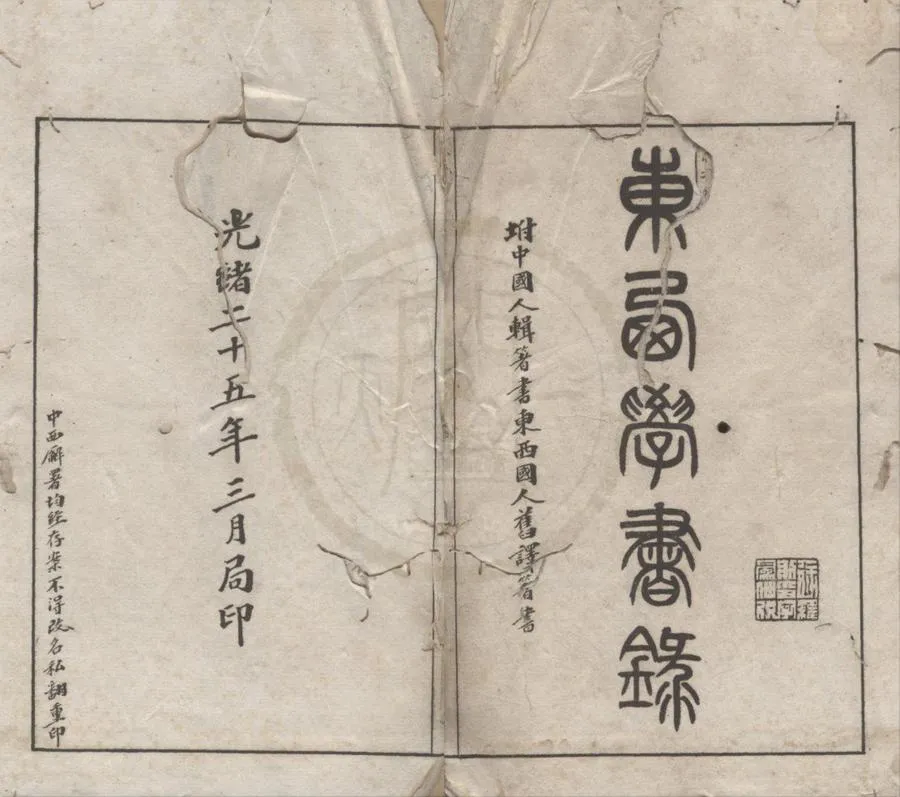 東西學書錄
坿中國人輯箸書東西國人舊譯箸書
光緒二十五年三月局印
中西廨署均經存案不得改名私翻重印